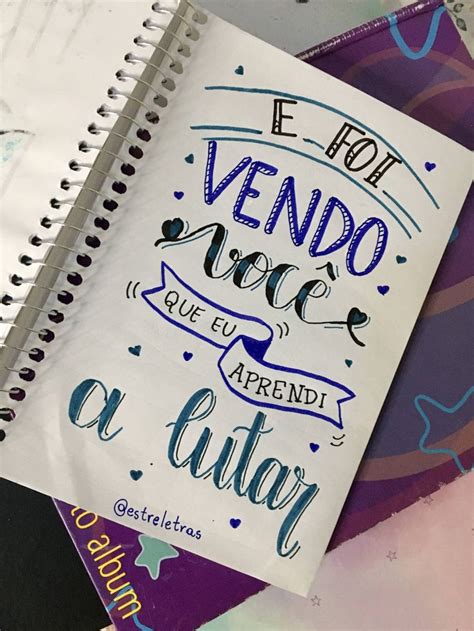 E FOI
VENDO
você
QUE EU
APRENDI
a lutar
@estreletras
to album